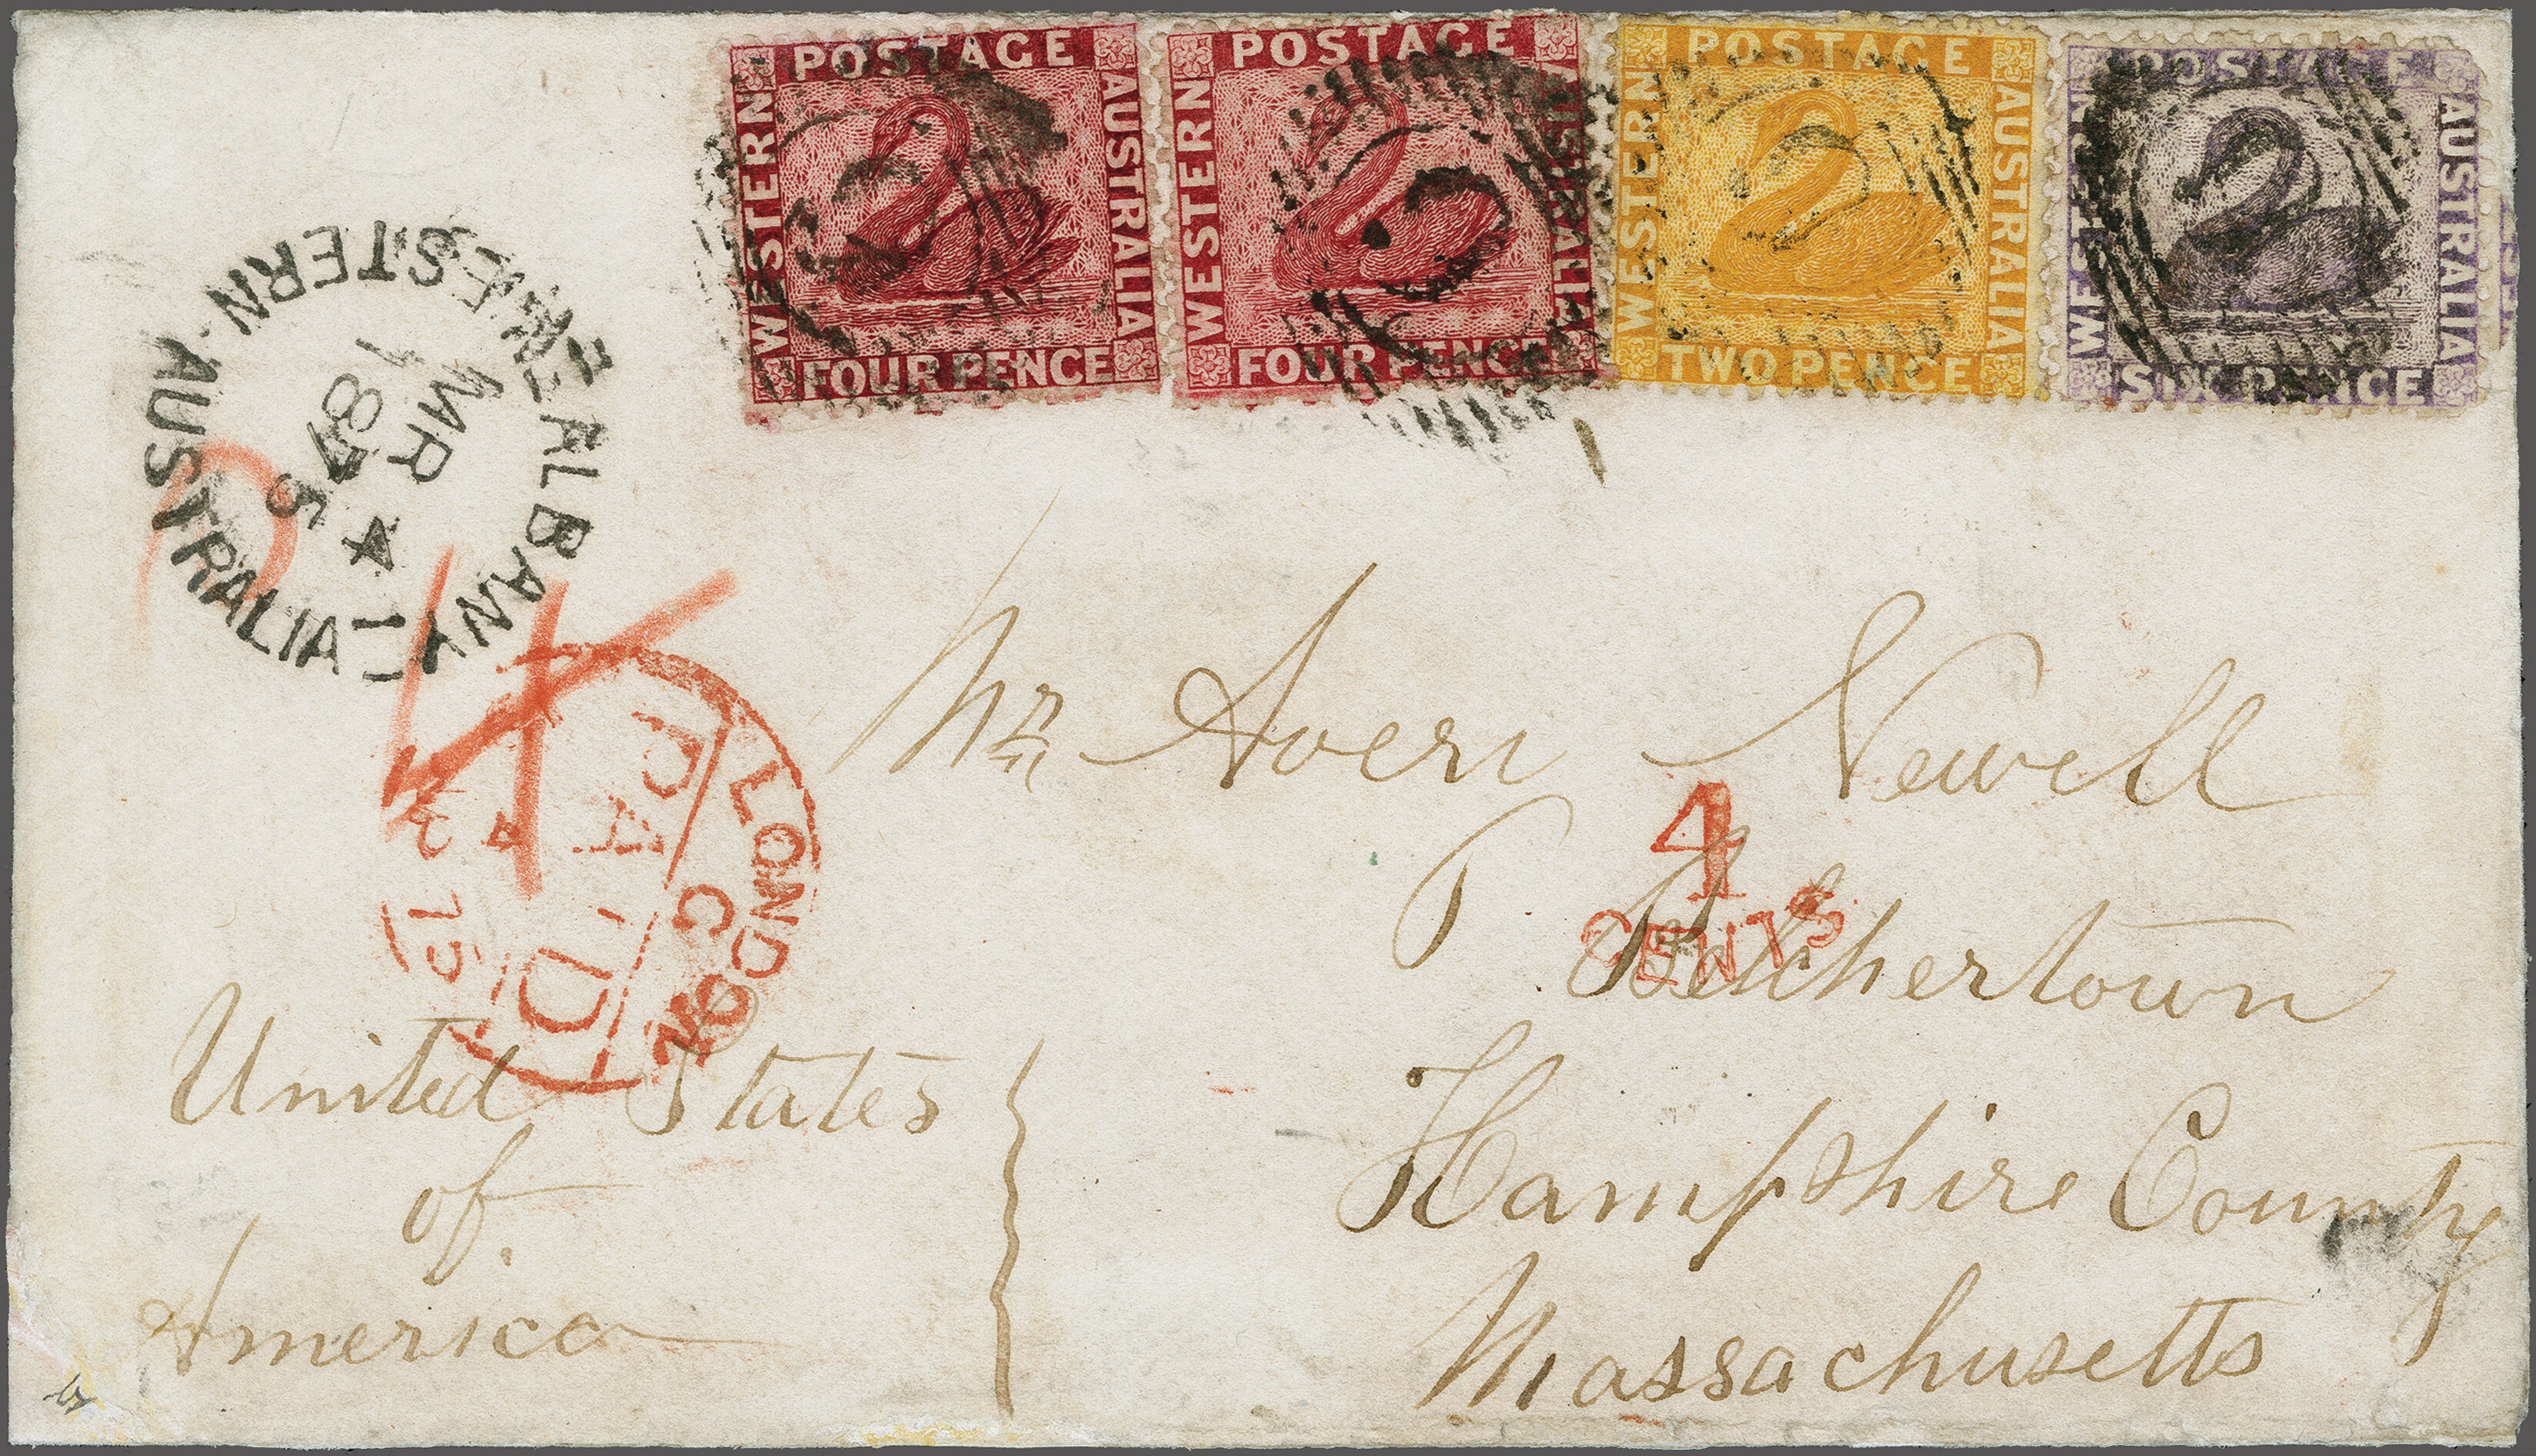 POSTAGE
WESTERN
AUSTRALIA
FOUR PENCE
POSTAGE
WESTERN
AUSTRALIA
FOUR PENCE
POSTAGE
WESTERN
AUSTRALIA
TWO PENCE
POSTAGE
WESTERN
AUSTRALIA
SIX PENCE
ALBANY
WESTERN - AUSTRALIA
MR
4
LONDON
C
PAID
Mr Averi Newell
4
CENTS
Belchertown
Hampshire County
Massachusetts
United States
of
America